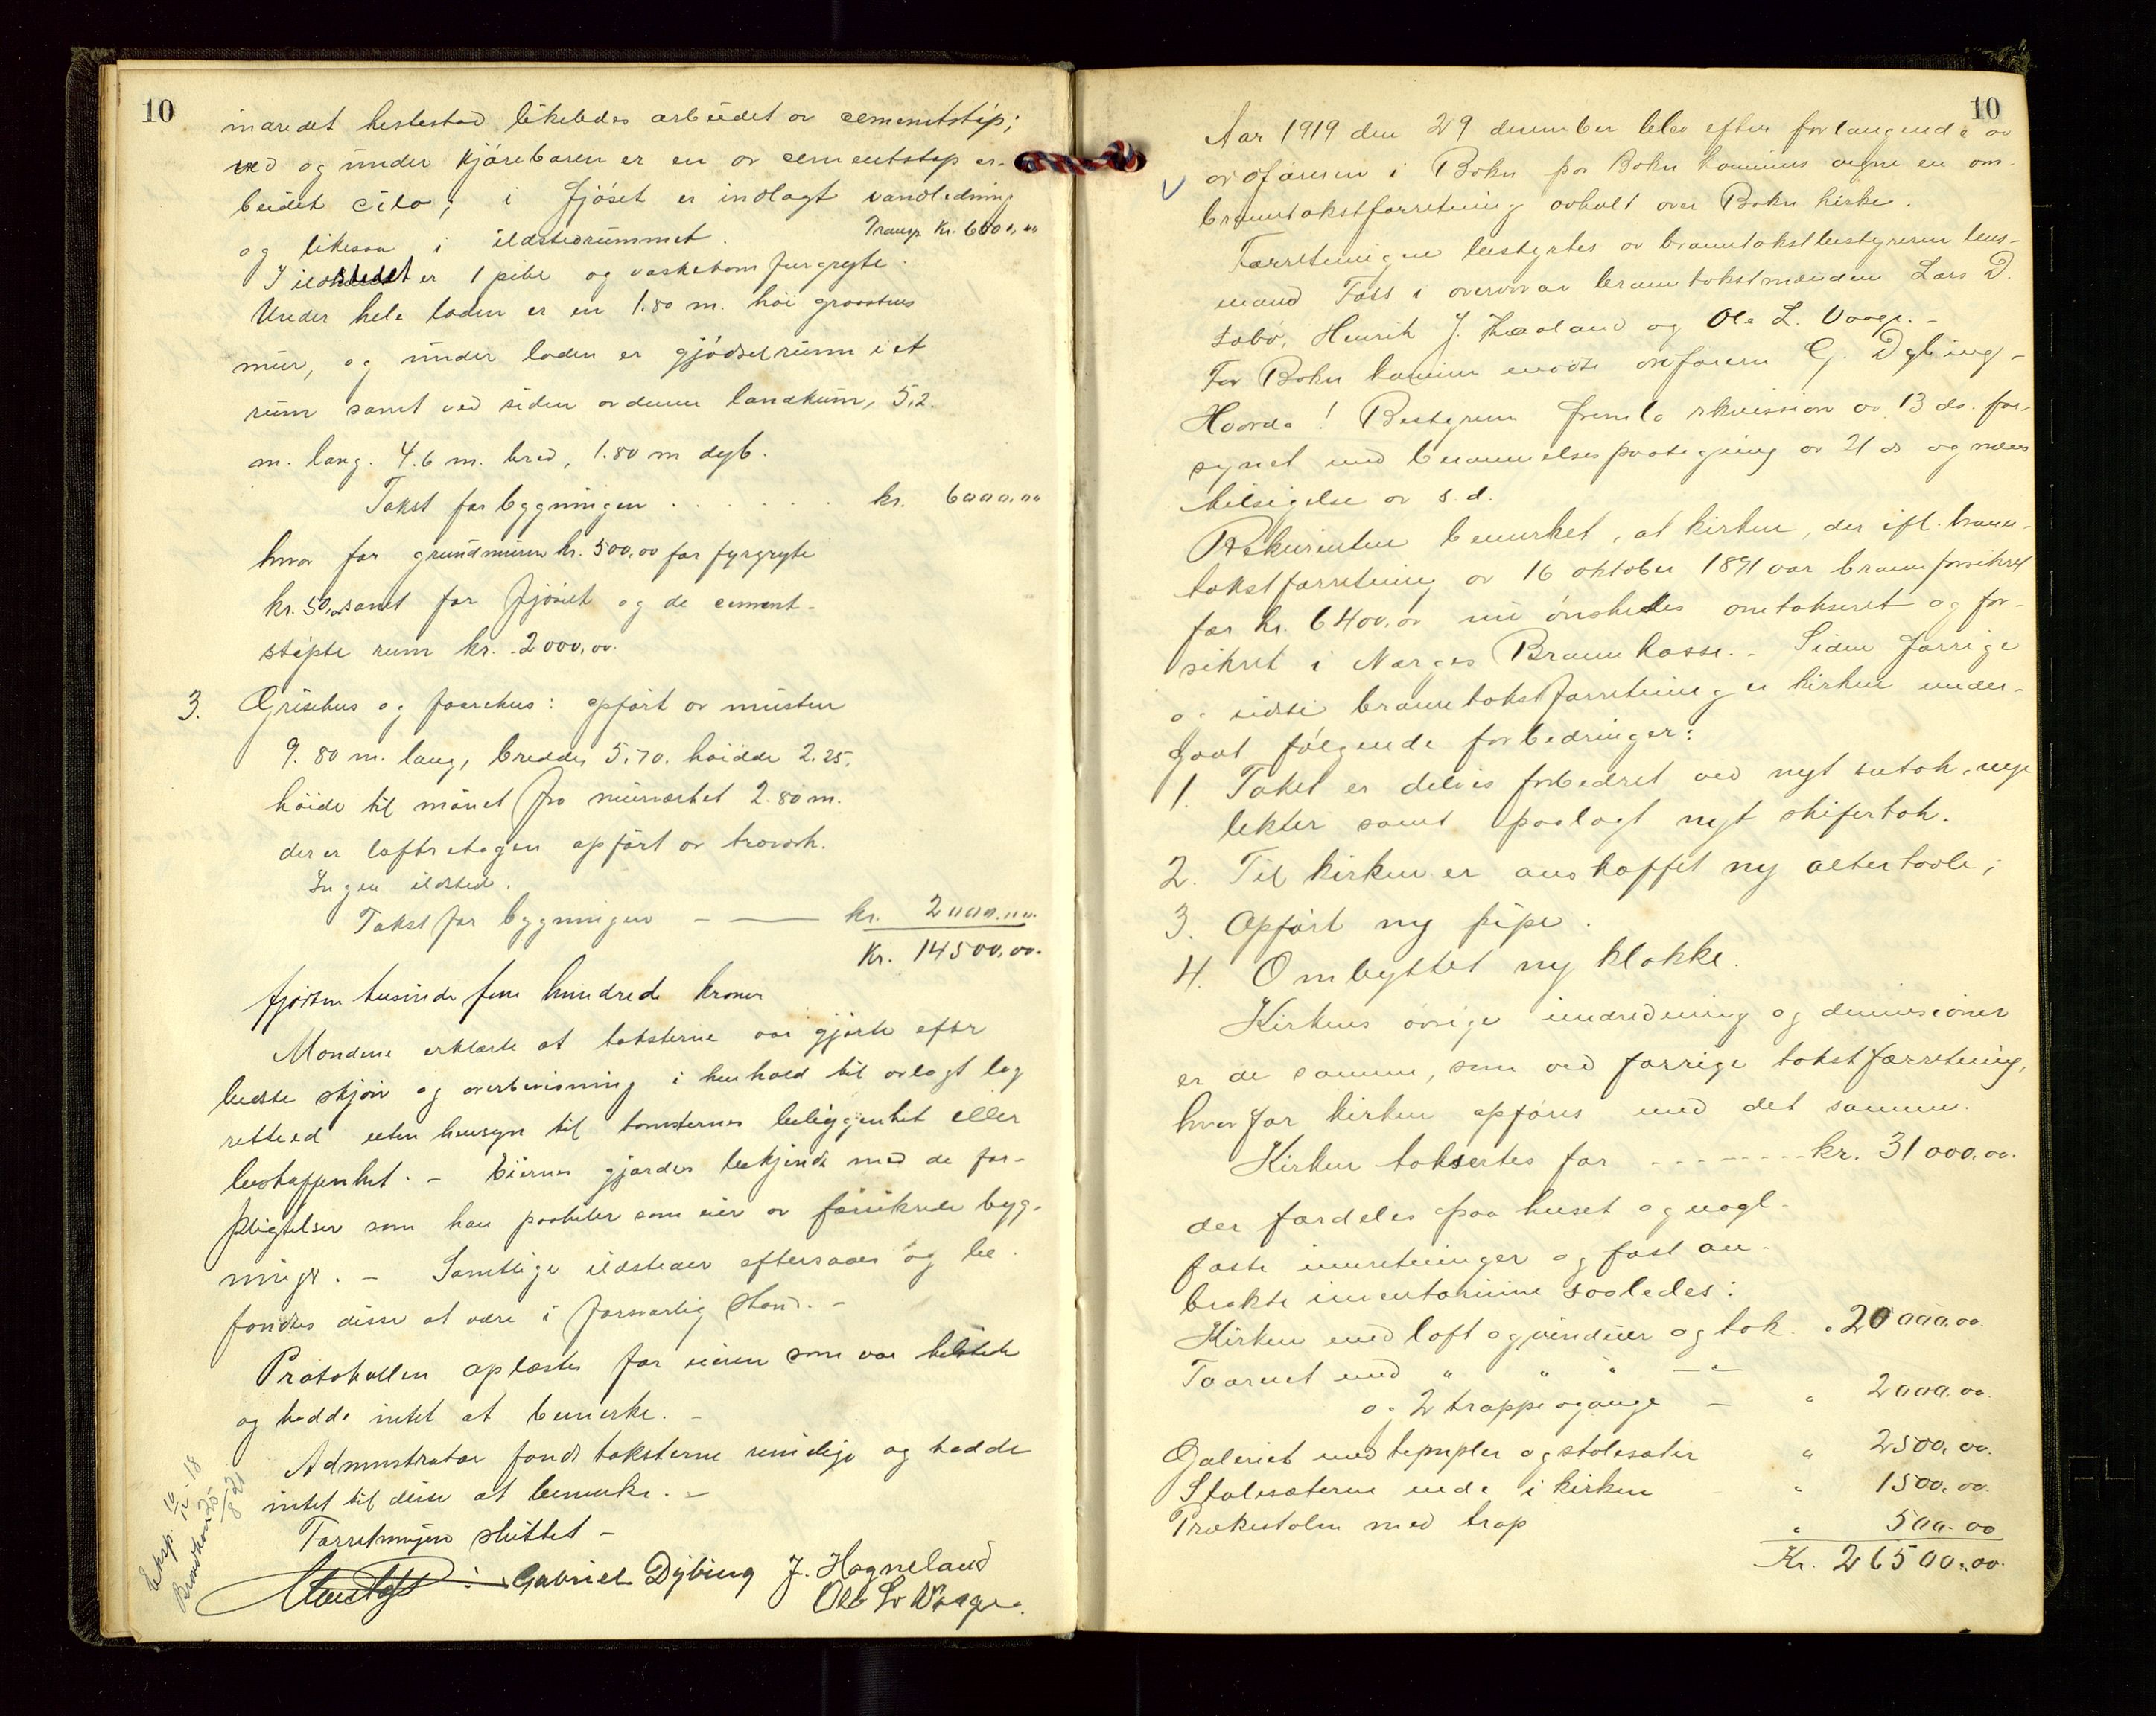 10
inaredet hestestad likeledes arbeidet av cementstøp;
ved og under kjørebaren er en av cementstøp ar-
beidet cilo; i fjøset er indlagt vandledning
og likesaa i ildstedrummet. Transp. Kr. 6500,00
I ildstedet er 1 pibe og vaskebom fyrgryte.
Under hele loden er en 1.80 m. høi graastens
mur, og under loden er gjødselrum i et
rum samt ved siden av denne landkum, 5,2.
m. lang. 4.6 m. bred, 1.80 m dyb.
Takst for bygningen . . . . . . kr. 6000.00
hvor for grundmuren kr. 500,00 for fyrgryte
kr. 50,00 samt for fjøset og de cement-
støpte rum kr. 2000,00.
3. Grisehus og faarehus: opført av mursten
9.80 m. lang, bredde, 5,70. høidde 2.25,
høide til mønet fra murværket 2.80 m.
der er loftsetagen opført av traverk.
Ingen ildsted.
Takst for bygningen - — kr. 2000.00.
Kr. 14500,00.
fjorten tusinde fem hundrede kroner
Mændene erklærte at taksterne var gjorte efter
bedste skjøn og overbevisning i henhold til avlagt lag
retteed uten hensyn til tomternes beliggenhet eller
beskaffenhet. - Eieren gjordes bekjendt med de for-
pligtelser som han paahviler som eier av forsikrede byg-
ninger. - Samtlige ildsteder eftersaaes og be-
fandtes disse at være i forsvarlig stand. -
Protokollen oplæstes for eieren som var tilstede
og hadde intet at bemerke. -
Administrator fandt taksterne rimelige og hadde
intet til disse at bemerke. -
Forretningen sluttet -
Gabriel Dybing J. Hogneland
Ole L. Vaage.
Eksp. 16/12-18
Brandkau 25/8 21
10
Aar 1919 den 29 desember blev efter forlangende av
ordføreren i Bokn for Bokn kommunes vegne en om-
branntakstforretning avholt over Bokn kirke.
Forretningen bestyrtes av branntakstbestyreren lens-
mand Toft i overvær av branntakstmændene Lars D.
Løbø, Henrik J. Haaland og Ole L. Vaage. -
For Bokn kommune møtte ordføreren G. Dybing -
Hvorda! Bestyreren fremla rekvisition av 13 ds. for-
synet med berammelsespaategning av 21 ds og mænds
tilsigelse av s.d.
Rekvirenten bemerket, at kirken, der ifl. brann-
takstforretning av 16 oktober 1891 var brannforsikret
for kr. 6400,00 nu ønskedes omtakseret og for-
sikret i Norges Brannkasse. - Siden forrige
og sidste branntakstforretning er kirken under-
gaat følgende forbedringer:
1. Taket er delvis forbedret ved nyt sutak, nye
lekter samt paalagt nyt skifertak.
2. Til kirken er anskaffet ny altertavle;
3. Opført ny pipe.
4. Ombyttet ny klokke.
Kirkens øvrige indredning og dimensioner
er de samme, som ved forrige takstforretning,
hvorfor kirken opføres med det samme.
Kirken takseertes for - - - - - - - - kr. 31000.00.
der fordeles paa huset og nagl-
faste innretninger og fast an-
brakte inventarium saaledes:
Kirken med loft og vinduer og tak. " 20000.00.
Taarnet med " " " — " —
og 2 trappeogange — " 2000.00.
Galeriet med tempeler og stolesæter " 2500,00.
Stolesæterne nede i kirken " 1500.00.
Prækestolen med trap " 500.00
Kr. 26500.00.